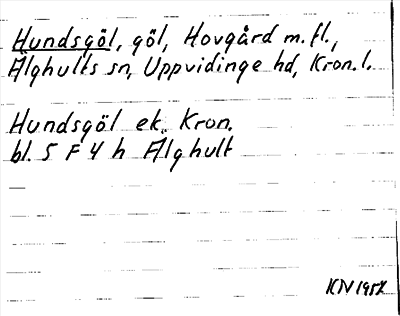 Hundsgöl, göl, Hovgård m.fl.,
Älghults sn, Uppvidinge hd, Kron.l.
Hundsgöl ek. Kron.
bl. 5 F 4 h Älghult